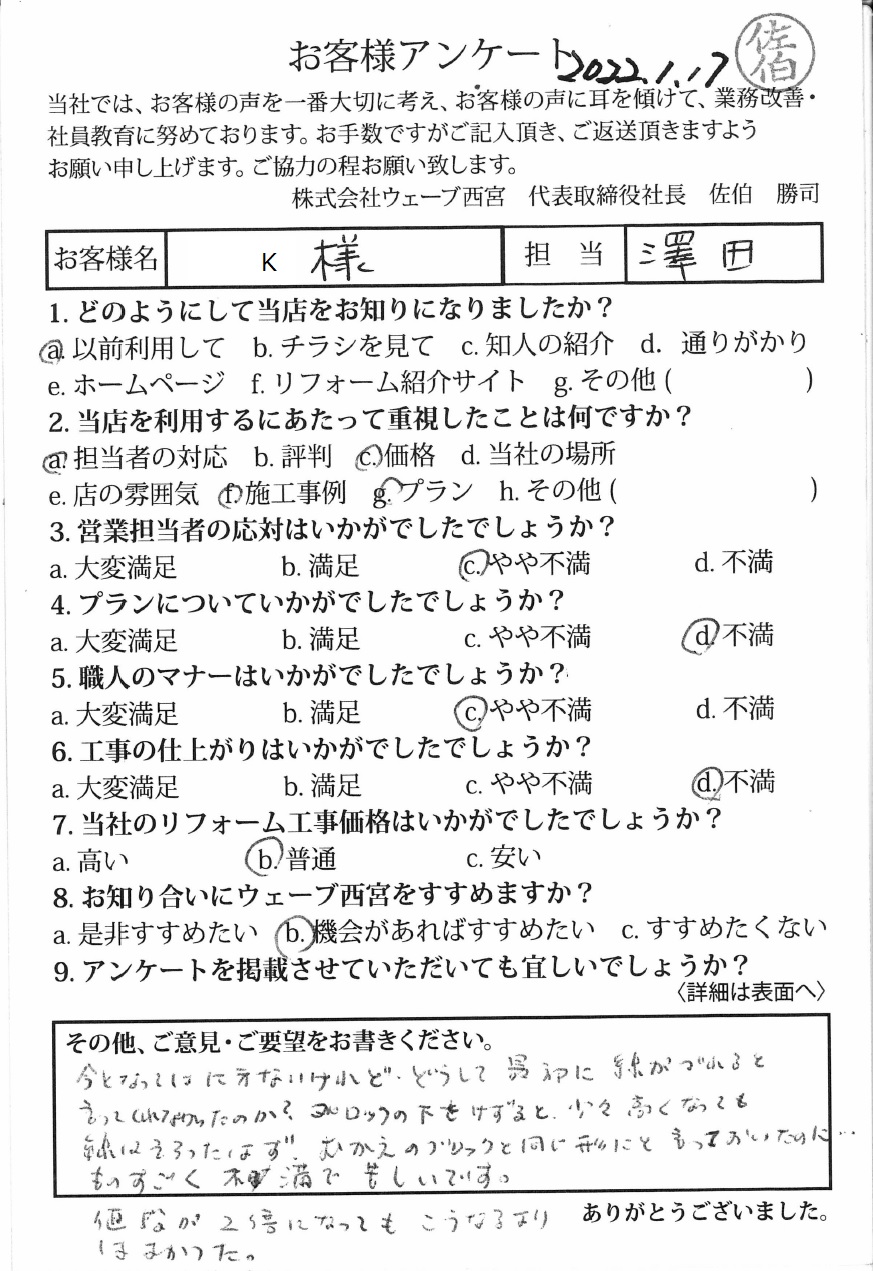 お客様アンケート 2022.1.17 佐伯
当社では、お客様の声を一番大切に考え、お客様の声に耳を傾けて、業務改善・
社員教育に努めております。お手数ですがご記入頂き、ご返送頂きますよう
お願い申し上げます。ご協力の程お願い致します。
株式会社ウェーブ西宮 代表取締役社長 佐伯 勝司
お客様名 K 様 担当 澤田
1. どのようにして当店をお知りになりましたか？
a. 以前利用して b. チラシを見て c. 知人の紹介 d. 通りがかり
e. ホームページ f. リフォーム紹介サイト g. その他 ( )
2. 当店を利用するにあたって重視したことは何ですか？
a. 担当者の対応 b. 評判 c. 価格 d. 当社の場所
e. 店の雰囲気 f. 施工事例 g. プラン h. その他 ( )
3. 営業担当者の応対はいかがでしたでしょうか？
a. 大変満足 b. 満足 c. やや不満 d. 不満
4. プランについていかがでしたでしょうか？
a. 大変満足 b. 満足 c. やや不満 d. 不満
5. 職人のマナーはいかがでしたでしょうか？
a. 大変満足 b. 満足 c. やや不満 d. 不満
6. 工事の仕上がりはいかがでしたでしょうか？
a. 大変満足 b. 満足 c. やや不満 d. 不満
7. 当社のリフォーム工事価格はいかがでしたでしょうか？
a. 高い b. 普通 c. 安い
8. お知り合いにウェーブ西宮をすすめますか？
a. 是非すすめたい b. 機会があればすすめたい c. すすめたくない
9. アンケートを掲載させていただいても宜しいでしょうか？
〈詳細は表面へ〉
その他、ご意見・ご要望をお書きください。
今となっては仕方ないけれど、どうして最初に線がづれると
言ってくれなかったのか？ブロックの下をけずると、少々高くなっても
線はそろったはず！むかえのブロックと同じ形にと言っておいたのに…
ものすごく不満で苦しいです。
値段が2倍になってもこうなるより
はよかった。
ありがとうございました。